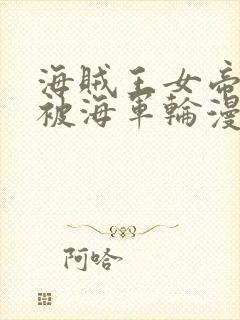 海贼王女帝
被海軍輪漫
阿哈